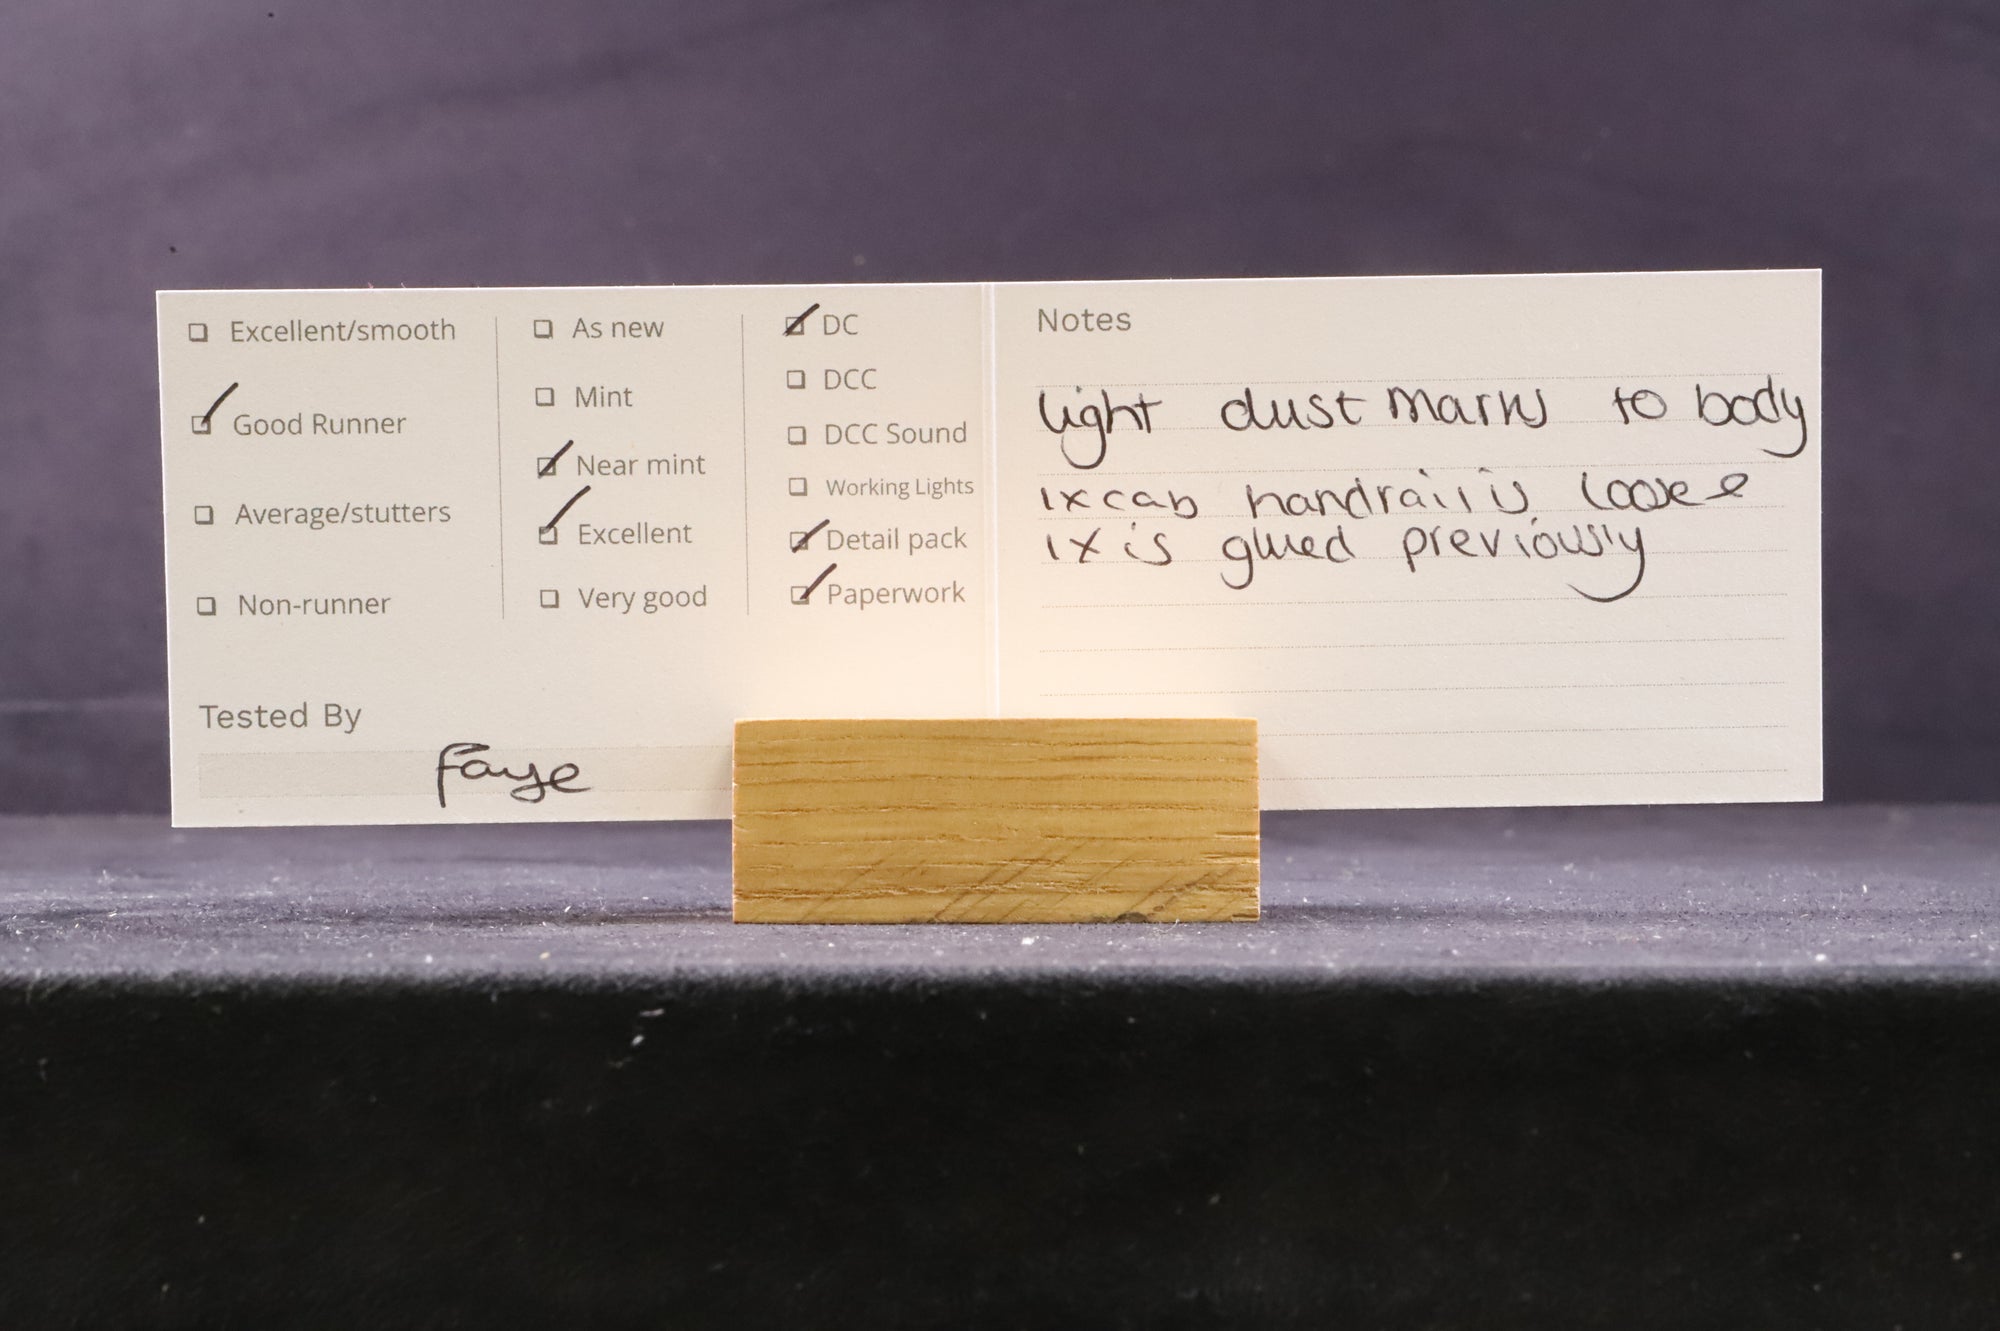 Excellent/smooth
Good Runner
Average/stutters
Non-runner
As new
Mint
Near mint
Excellent
Very good
DC
DCC
DCC Sound
Working Lights
Detail pack
Paperwork
Tested By
Faye
Notes
light dust marks to body
1x cab handrail is loose
1x is glued previously